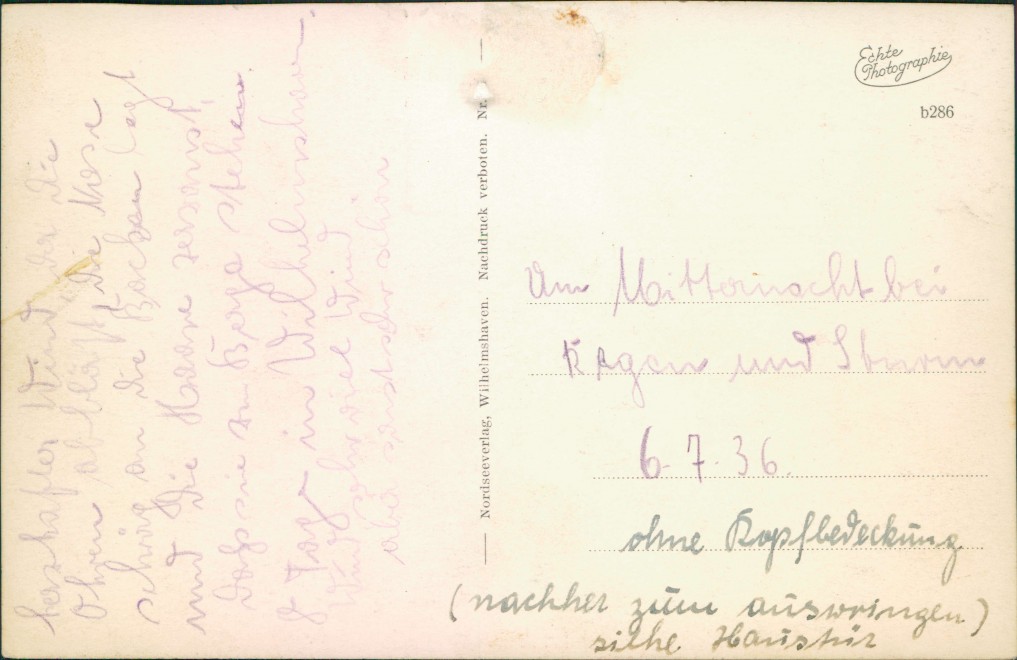 boshafter Wind der die
Ohren abbläst, die Nase
schräg an die Backen legt
und die Haare zerzaust,
dass sie zu Berge stehen.
8 Tage in Wilhelmshaven
Wind sehr viel Wind
aber
Nordseeverlag, Wilhelmshaven. Nachdruck verboten. Nr.
Echte
Photographie
b286
Um Mitternacht bei
Regen und Sturm
6. 7. 36.
ohne Kopfbedeckung
(nachher zum auswringen)
siehe Haustür